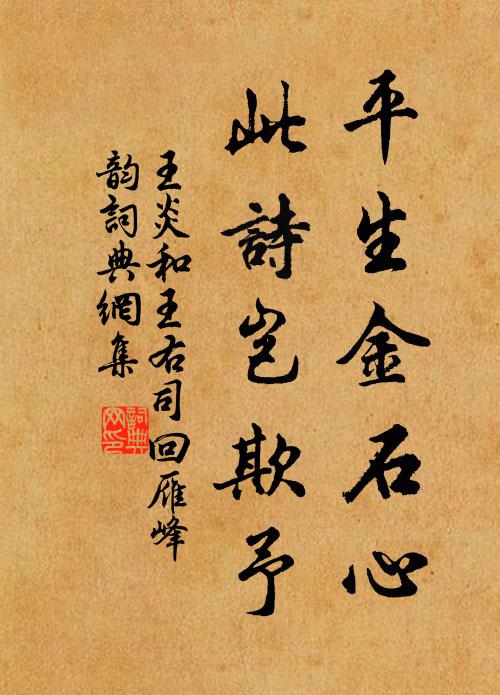 平生金石心
此詩豈欺予
王炎和王右司回雁峰
韵詞典網集
詞典網印